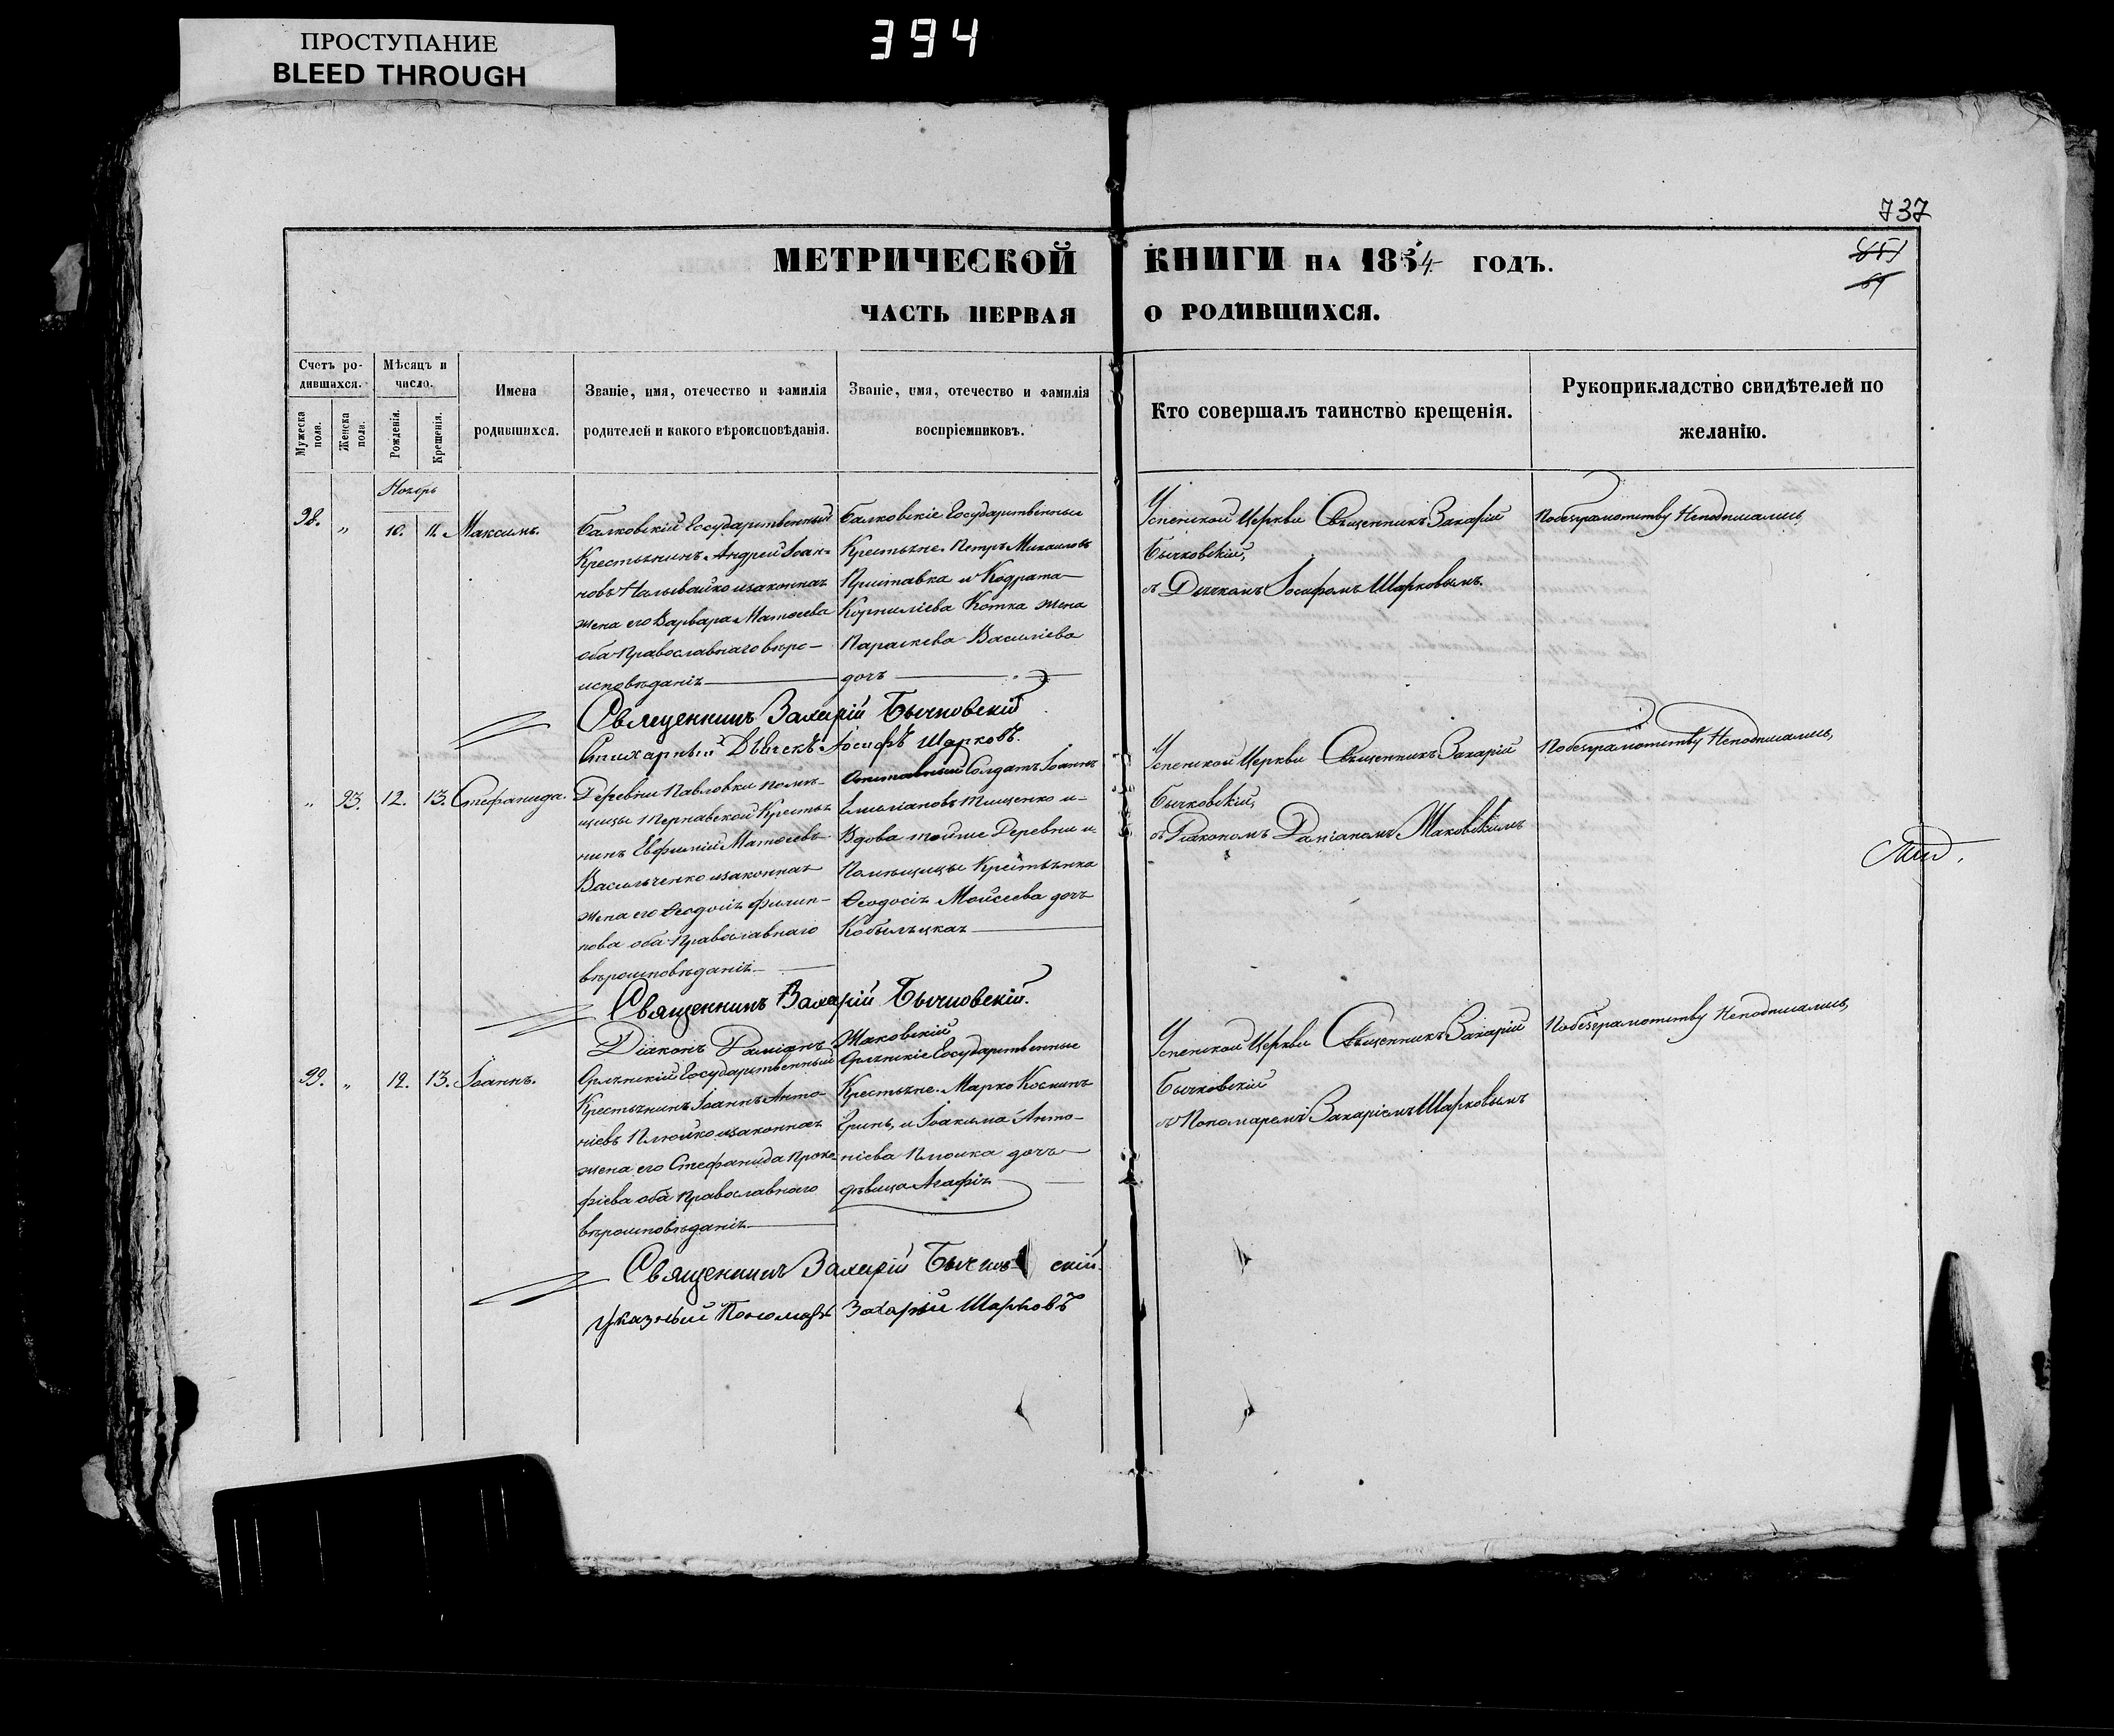 ПРОСТУПАНИЕ
BLEED THROUGH
394
737
МЕТРИЧЕСКОЙ КНИГИ НА 1854 ГОДЪ.
ЧАСТЬ ПЕРВАЯ О РОДИВШИХСЯ.
Счетъ ро-
дившихся.
Мужеска пола.
Женска пола.
Мѣсяцъ и
число.
Рожденія.
Крещенія.
Имена
родившихся.
Званіе, имя, отечество и фамилія
родителей и какого вѣроисповѣданія.
Званіе, имя, отечество и фамилія
воспріемниковъ.
Кто совершалъ таинство крещенія.
Рукоприкладство свидѣтелей по
желанію.
Ноябрь
98. " 10. 11. Максимъ.
Балковскій Государственный
Крестьянинъ Андрей Іоан-
новъ Наливайко и законная
жена его Варвара Матѳеева
оба Православнаго вѣро-
исповѣданія
Балковскіе Государственные
Крестьяне Петръ Михаиловъ
Приставка и Кодрата
Корниліева Котка жена
Параскева Василіева
дочь
Успенской Церкви Священникъ Захарій
Бычковскій,
съ Дьячкомъ Іосифомъ Шарковымъ.
Побезграмотству Неподписались,
Священникъ Захарій Бычковскій
Стихарный Дьячекъ Іосифъ Шарковъ.
" 93. 12. 13. Стефанида.
Деревни Павловки помѣ-
щицы Тернавской Кресть-
нинъ Евфимій Матѳеевъ
Васильченко и законная
жена его Ѳеодосія Филип-
пова оба Православнаго
вѣроисповѣданія
Отставный Солдатъ Іоаннъ
Емиліановъ Тищенко и
Вдова тойже Деревни и
Помѣщицы Крестьянка
Ѳеодосія Мойсеева дочь
Кобыляцкая
Успенской Церкви Священникъ Захарій
Бычковскій,
съ Діакономъ Даміаномъ Маковскимъ
Побезграмотству Неподписались,
Священникъ Захарій Бычковскій.
Діаконъ Даміанъ Маковскій
99. " 12. 13. Іоаннъ.
Орлянскій Государственный
Крестьянинъ Іоаннъ Анто-
ніевъ Плюйко и законная
жена его Стефанида Проко
фіева оба Православнаго
вѣроисповѣданія
Орлянскіе Государственные
Крестьяне Марко Косминъ
Гринь, и Іоакима Анто-
ніева Плюйка дочь
дѣвица Агафія
Успенской Церкви Священникъ Захарій
Бычковскій
съ Пономаремъ Захаріемъ Шарковымъ
Побезграмотству Неподписались,
Священникъ Захарій Бычковскій.
Указный Пономарь Захарій Шарковъ